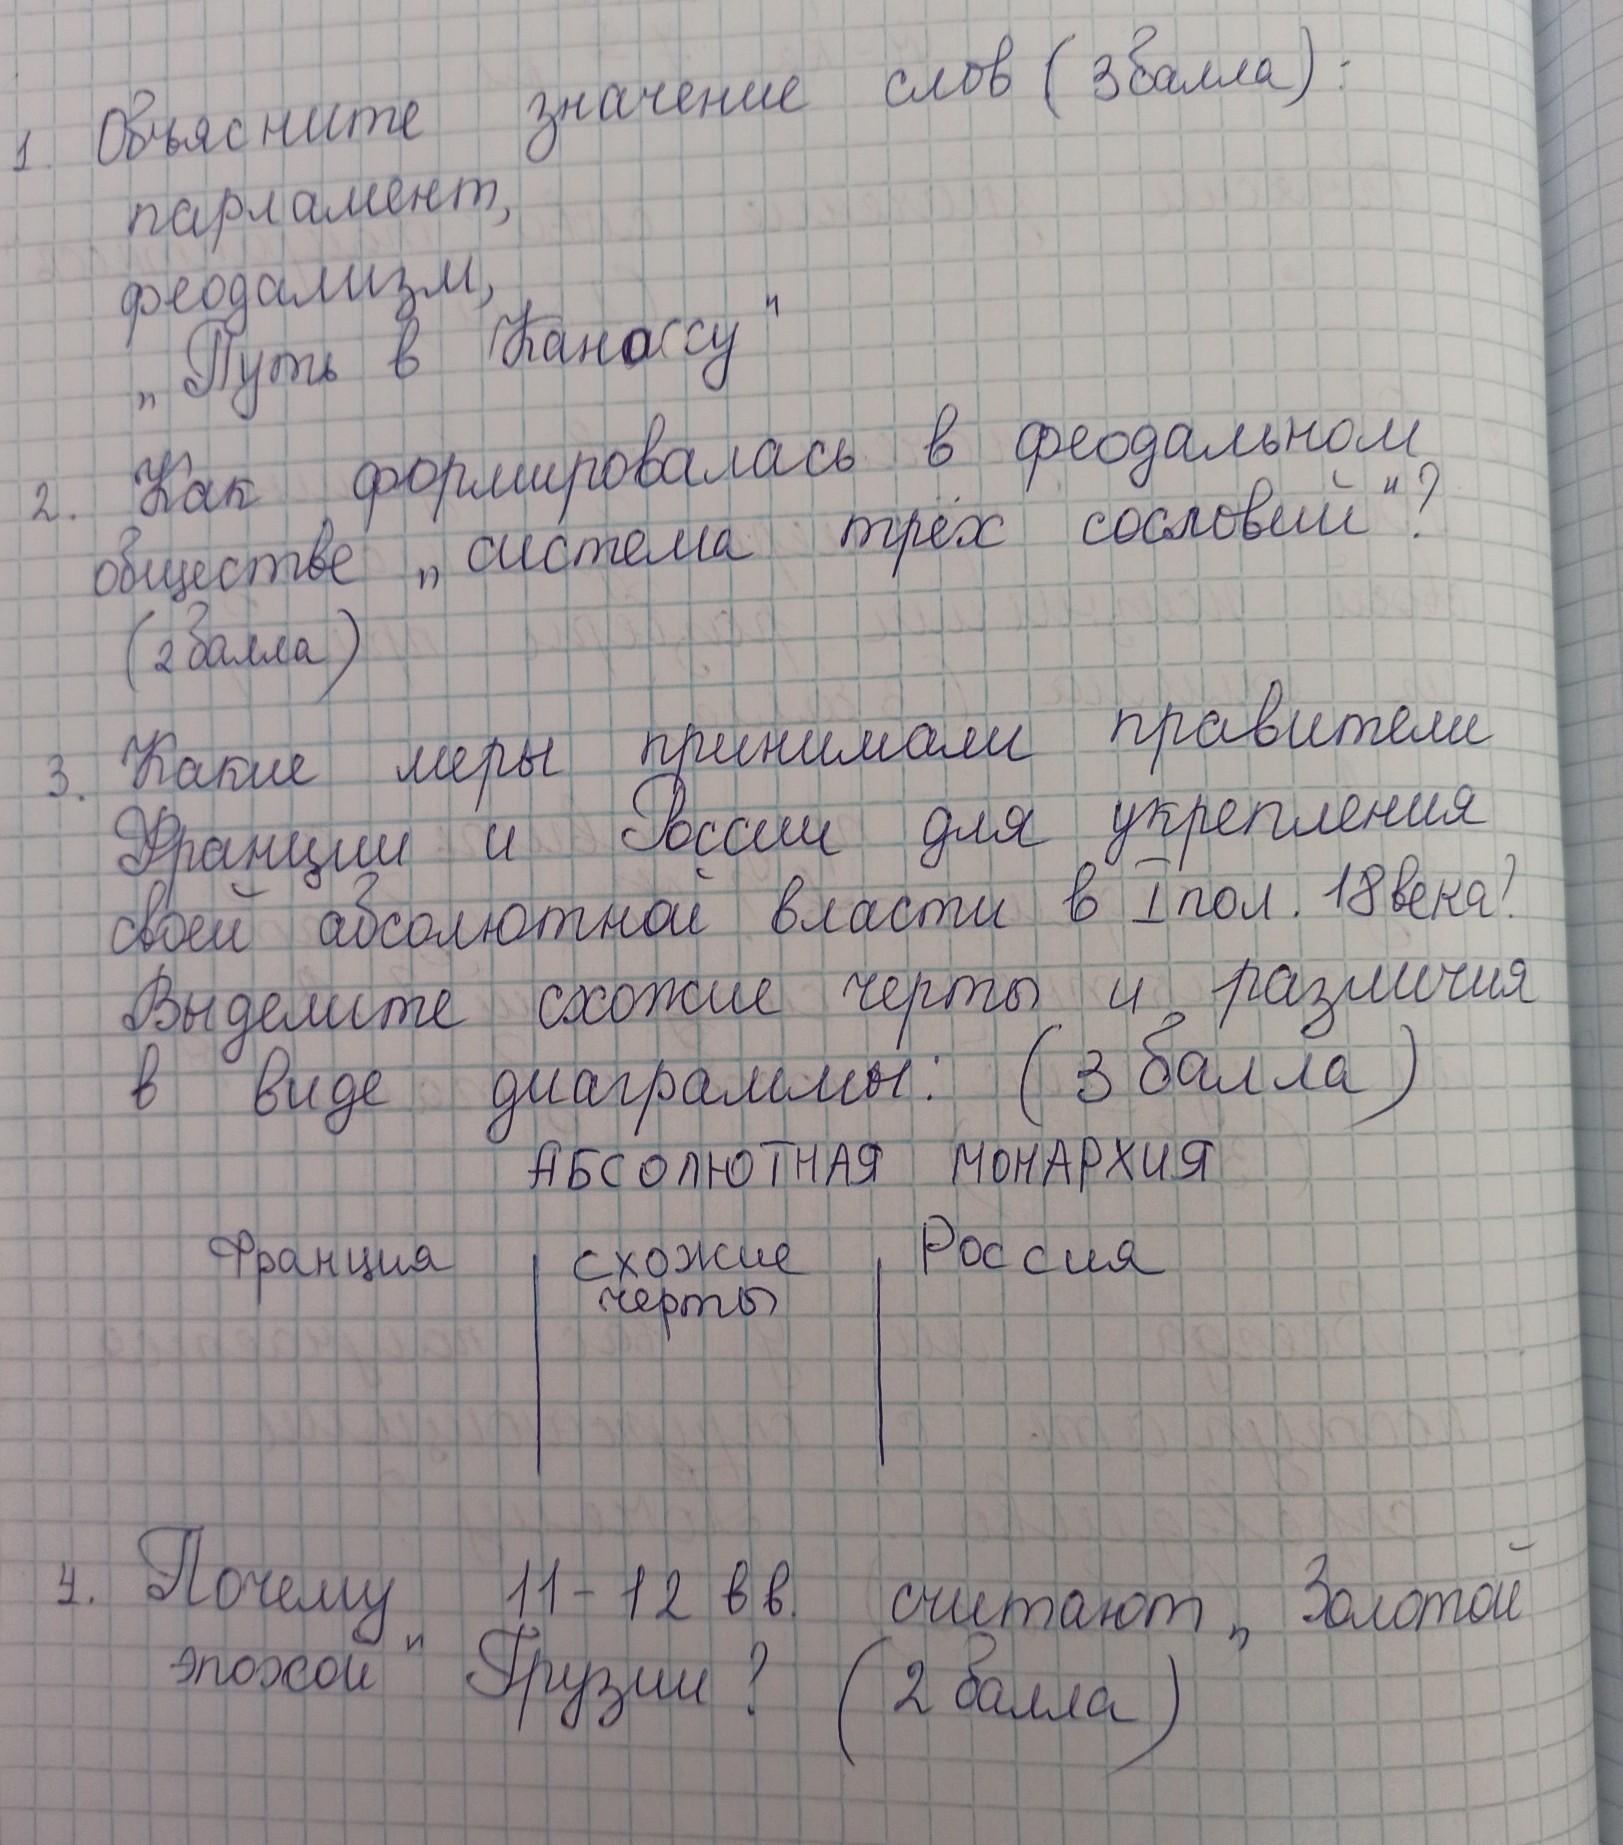 1. Объясните значение слов (3 балла):
парламент,
феодализм,
„Путь в Каноссу"
2. Как формировалась в феодальном
обществе „система трёх сословий"?
(2 балла)
3. Какие меры принимали правители
Франции и России для укрепления
своей абсолютной власти в I пол. 18 века?
Выделите схожие черты и различия
в виде диаграммы: (3 балла)
АБСОЛЮТНАЯ МОНАРХИЯ
Франция схожие Россия
черты
4. Почему 11-12 вв. считают „Золотой
эпохой" Грузии? (2 балла)